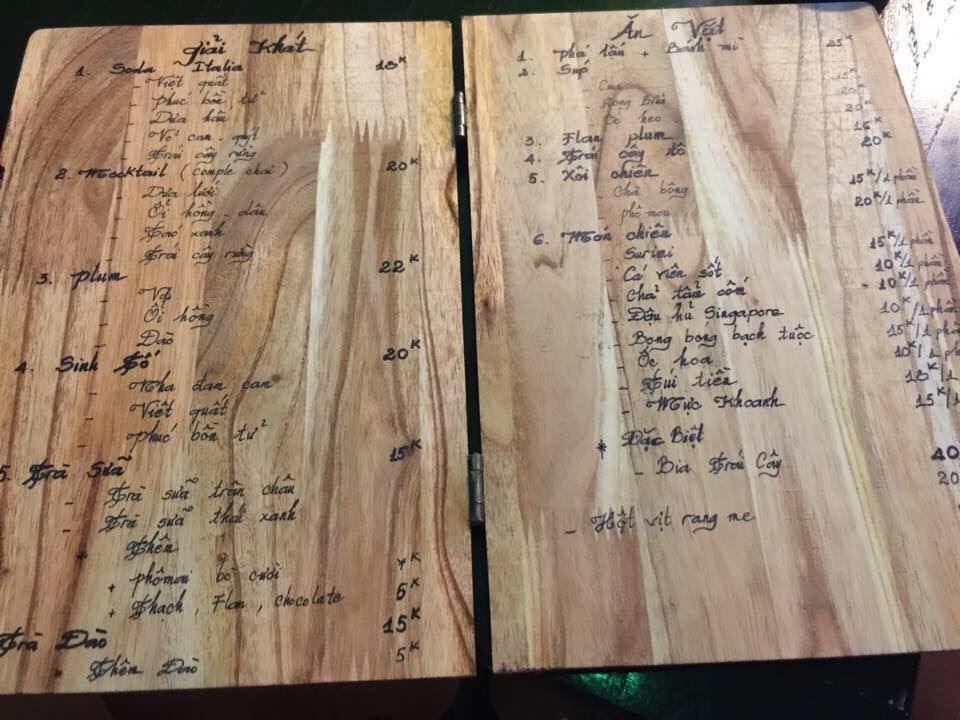 Giải Khát
1. Soda Italia 18K
- Việt quất
- Phúc bồn tử
- Dưa hấu
- Vỏ cam - quýt
- Trái cây rừng
2. Mocktail (Comple chai) 20K
- Dưa lưới
- Ổi hồng - dâu
- Táo xanh
- Trái cây rừng
3. Plum 22K
- Vải
- Ổi hồng
- Đào
4. Sinh Tố 20K
- Nha đam cam
- Việt quất
- Phúc bồn tử
5. Trà Sữa 15K
- Trà sữa trân châu
- Trà sữa thái xanh
* Thêm
+ phômai bò cười 7K
+ Thạch, Flan, chocolate 5K
Trà Đào 15K
* Thêm Đào 5K
Ăn Vặt
1. Phá lấu + Bánh mì 25K
2. Súp
- Cua 15K
- Rong Biển 20K
- Óc heo 20K
3. Flan plum 16K
4. Trái cây tô 20K
5. Xôi chiên
- Chà bông 15K/1 phần
- phô mai 20K/1 phần
6. Món chiên
- Surimi 15K/1 phần
- Cá viên sốt 10K/1 phần
- Chả tẩm cốm 10K/1 phần
- Đậu hủ Singapore 10K/1 phần
- Bong bóng bạch tuộc 15K/1 phần
- Ốc hoa 10K/1 phần
- Túi tiền 18K/1
- Mực Khoanh 15K/1
* Đặc Biệt
- Bia Trái Cây 40
20
- Hột vịt rang me